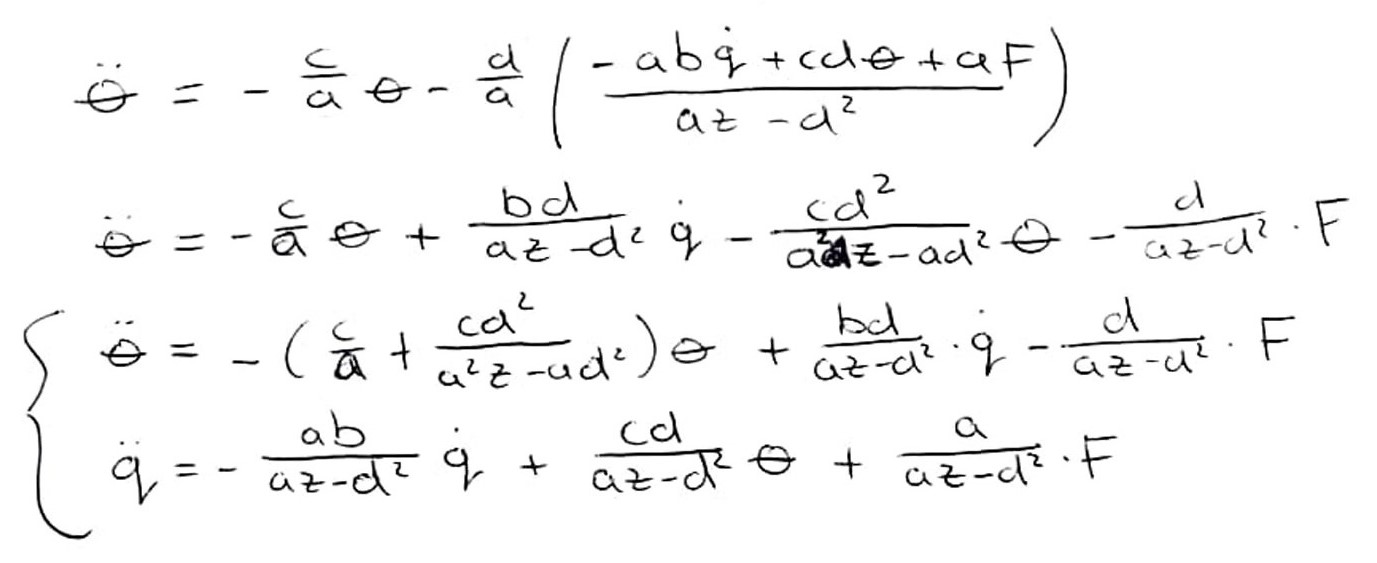 θ̈ = - c/a θ - d/a ( (-abq̇ + cdθ + aF) / (az - d²) )
θ̈ = - c/a θ + bd/(az - d²) q̇ - cd²/(a²z - ad²) θ - d/(az - d²) · F
θ̈ = - ( c/a + cd²/(a²z - ad²) ) θ + bd/(az - d²) · q̇ - d/(az - d²) · F
q̈ = - ab/(az - d²) q̇ + cd/(az - d²) θ + a/(az - d²) · F